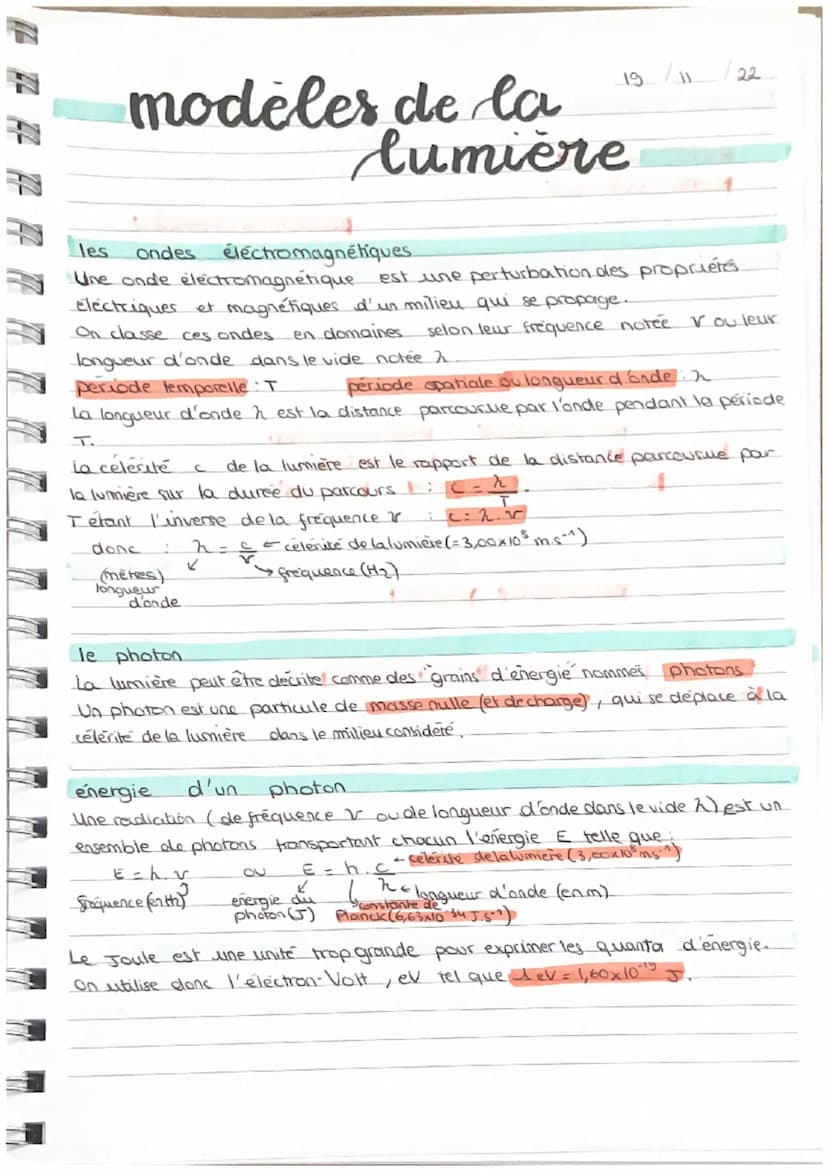 19 / 11 / 22
modèles de la
lumière
les ondes éléctromagnétiques
Une onde éléctromagnétique est une perturbation des propriétés
éléctriques et magnétiques d'un milieu qui se propage.
On classe ces ondes en domaines selon leur fréquence notée ν ou leur
longueur d'onde dans le vide notée λ.
période temporelle : T période spatiale ou longueur d'onde : λ
La longueur d'onde λ est la distance parcourue par l'onde pendant la période
T.
La célérité c de la lumière est le rapport de la distance parcourue par
la lumière sur la durée du parcours : c = λ/T.
T étant l'inverse de la fréquence ν : c = λ.ν
donc : λ = c/ν ← célérité de la lumière (= 3,00x10⁸ m.s⁻¹)
(mètres) ↙ → fréquence (Hz)
longueur
d'onde
le photon
La lumière peut être décrite comme des "grains d'énergie" nommés photons
Un photon est une particule de masse nulle (et de charge), qui se déplace à la
célérité de la lumière dans le milieu considéré.
énergie d'un photon
Une radiation (de fréquence ν ou de longueur d'onde dans le vide λ) est un
ensemble de photons transportant chacun l'énergie E telle que :
E = h.ν ou E = h.c/λ ← célérité de la lumière (3,00x10⁸ m.s⁻¹)
fréquence (en Hz) énergie du photon (J) constante de Planck (6,63x10⁻³⁴ J.s⁻¹) ← longueur d'onde (en m)
Le Joule est une unité trop grande pour exprimer les quanta d'énergie.
On utilise donc l'électron-Volt, eV tel que 1 eV = 1,60x10⁻¹⁹ J.